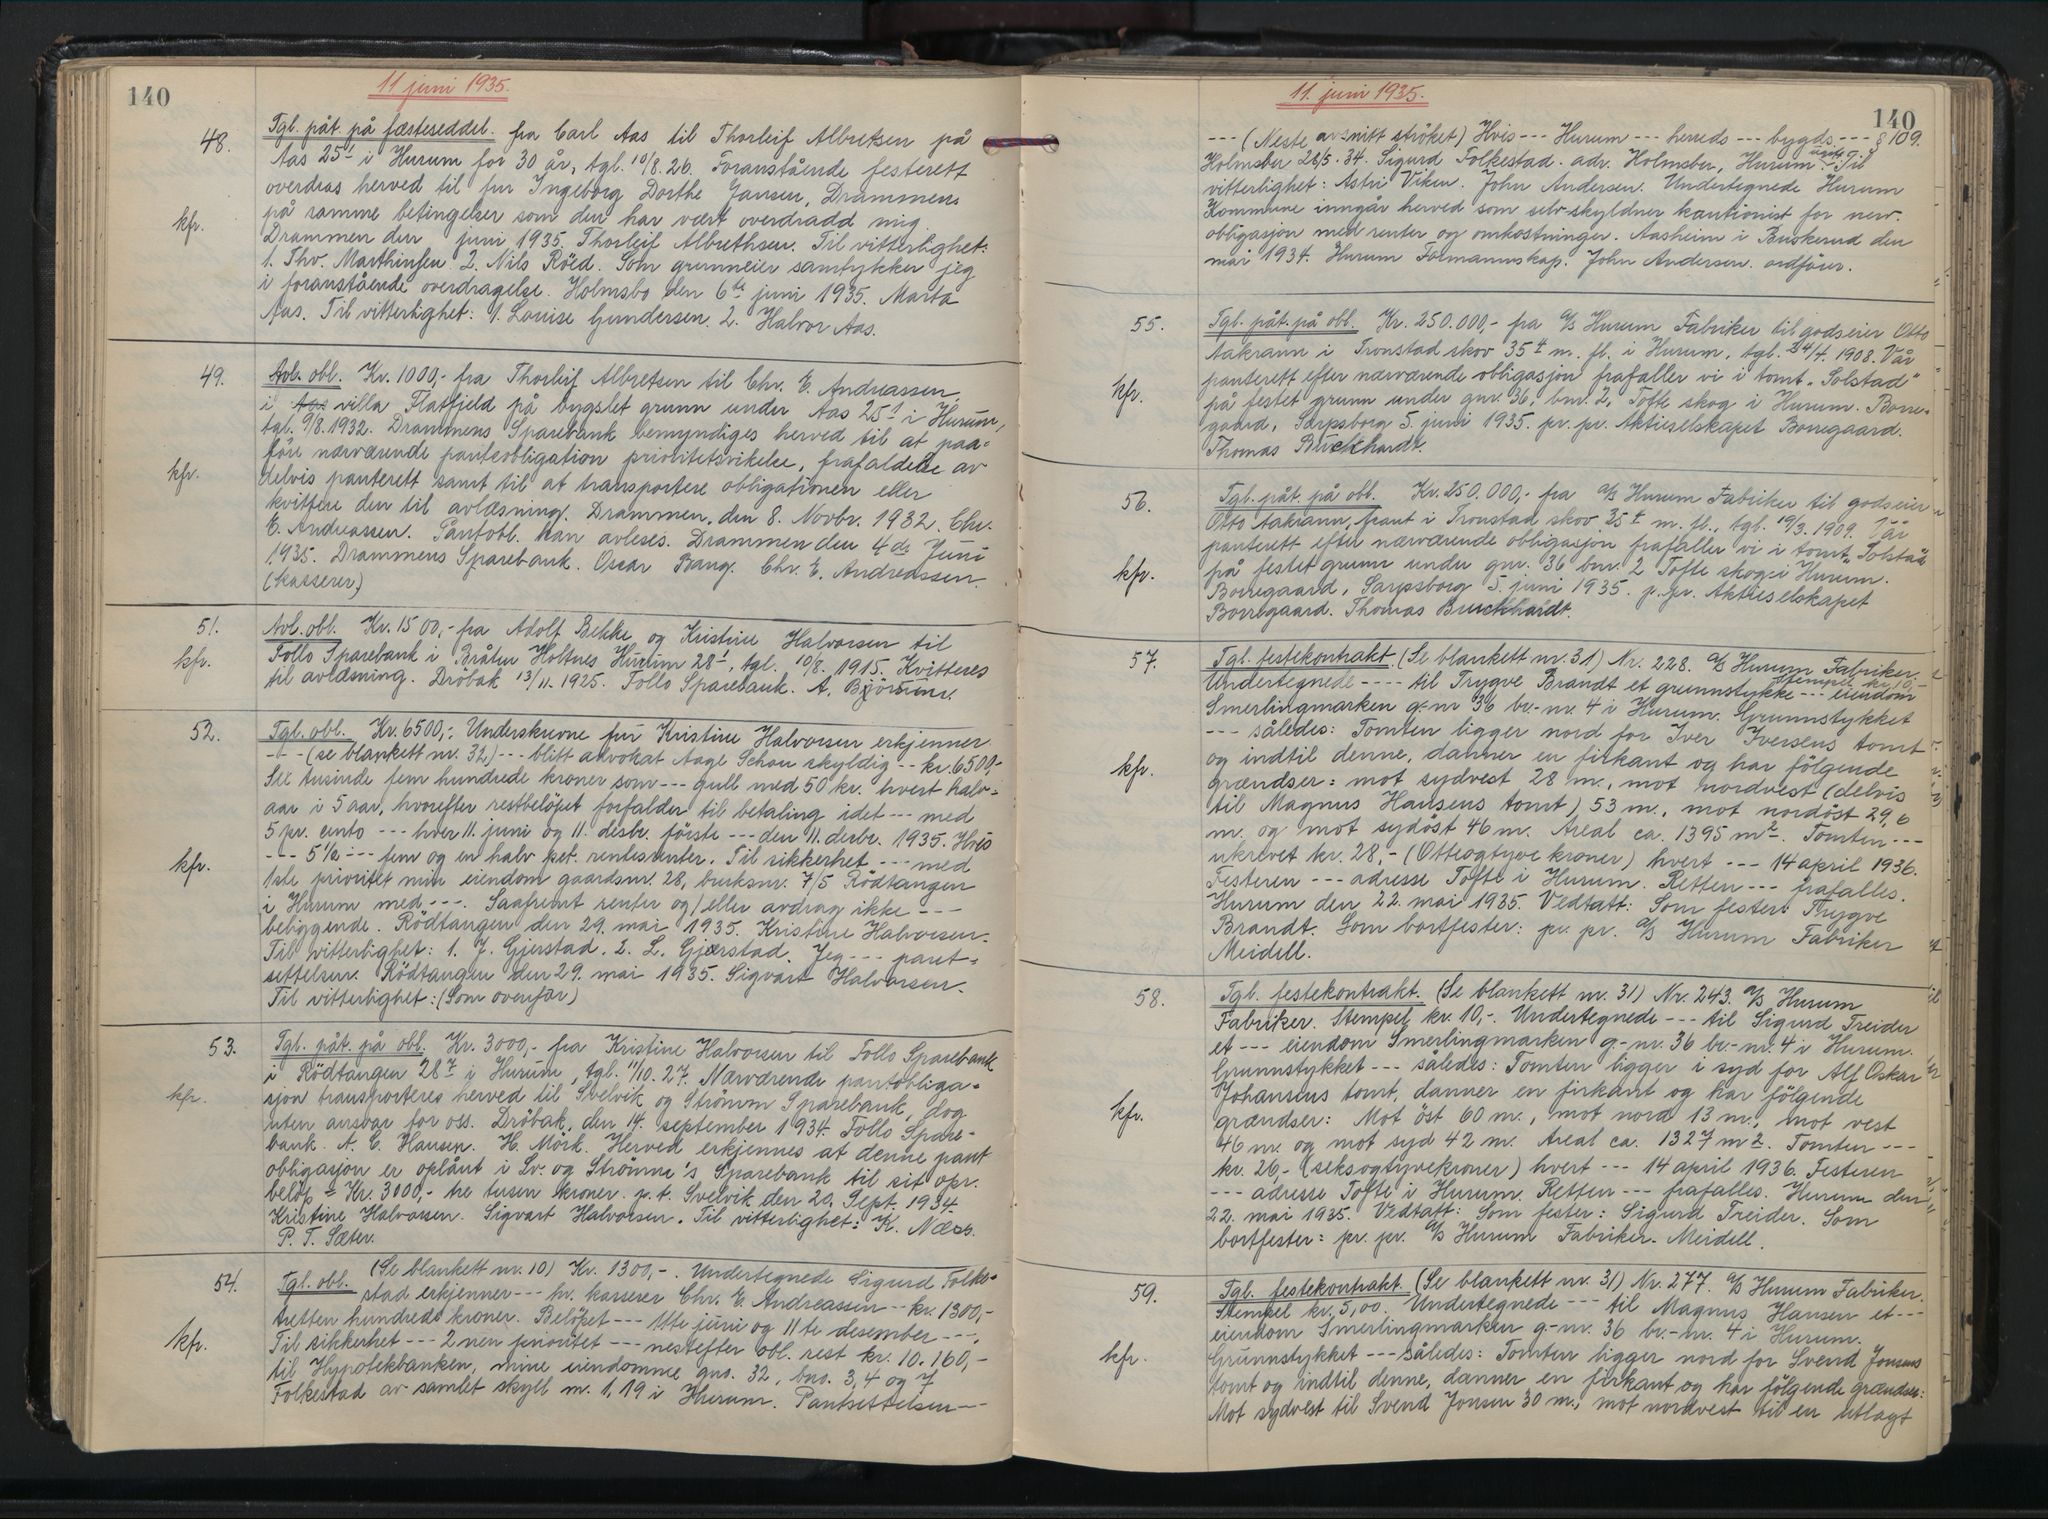 140
11 juni 1935.
48.
kfr.
Tgl. påt. på fæsteseddel. fra Carl Aas til Thorleif Albretsen på
Aas 25¹ i Hurum for 30 år, tgl. 10/8. 26. Foranstående festerett
overdras herved til fru Ingeborg Dorthe Jansen, Drammen,
på samme betingelser som den har vært overdradd mig.
Drammen den juni 1935. Thorleif Albrethsen. Til vitterlighet:
1. Thv. Marthinsen 2. Nils Röed. Som grunneier samtykker jeg
i foranstående overdragelse. Holmsbo den 6te juni 1935. Marta
Aas. Til vitterlighet: 1. Louise Gundersen. 2. Halvor Aas.
49.
kfr.
Avl. obl. Kr. 1000,- fra Thorleif Albretsen til Chr. E. Andreassen,
i Aas villa Flatfjeld på bygslet grunn under Aas 25¹ i Hurum,
tgl. 9/8. 1932. Drammens Sparebank bemyndiges herved til at paa-
føre nærværende panteobligation prioritetsvikelse, frafaldelse av
delvis panterett samt til at transportere obligationen eller
kvittere den til avlæsning. Drammen, den 8. Novbr. 1932. Chr.
E. Andreassen. Pantobl. kan avleses. Drammen den 4de Juni
1935. Drammens Sparebank. Oscar Bang. Chr. E. Andreassen.
(kasserer)
51.
kfr.
Avl. obl. Kr. 1500,- fra Adolf Bebke og Kristine Halvorsen til
Follo Sparebank i Bråten Holtnes Hurum 28¹, tgl. 10/8. 1915. Kvitteres
til avlæsning. Dröbak 13/11. 1925. Follo Sparebank. A. Björtum.
52.
kfr.
Tgl. obl. Kr. 6500,-. Underskrevne fru Kristine Halvorsen erkjenner
--- (se blankett nr. 32) --- blitt advokat Aage Schou skyldig -- kr. 6500,-
Sex tusinde fem hundrede kroner som --- gull med 50 kr. hvert halv-
aar i 5 aar, hvorefter restbelöpet forfalder til betaling idet --- med
5 pr. cento --- hver 11. juni og 11. desbr. förste --- den 11. desbr. 1935. Hvis
--- 5½ --- fem og en halv pct. rentesrenter. Til sikkerhet --- med
1ste prioritet min eiendom gaardsnr. 28, bruksnr. 7/5 Rödtangen
i Hurum med ---. Saafremt renter og/eller avdrag ikke ---
beliggende. Rödtangen den 29. mai 1935. Kristine Halvorsen.
Til vitterlighet: 1. J. Gjerstad. 2. L. Gjærstad. Jeg --- pant-
settelsen. Rödtangen den 29. mai 1935. Sigvart Halvorsen.
Til vitterlighet: (Som ovenfor)
53.
kfr.
Tgl. påt. på obl. Kr. 3000,- fra Kristine Halvorsen til Follo Sparebank
i Rödtangen 28⁷ i Hurum, tgl. 11/10. 27. Nærværende pantobliga-
sjon transporteres herved til Svelvik og Strömm Sparebank, dog
uten ansvar for oss. Dröbak, den 14. september 1934. Follo Spare-
bank. A. E. Hansen. H. Mörk. Herved erkjennes at denne pant
obligasjon er oplånt i Sv. og Strömm's Sparebank til sit opr.
belöp = Kr. 3000,- tre tusen kroner. p.t. Svelvik den 20. Sept. 1934.
Kristine Halvorsen. Sigvart Halvorsen. Til vitterlighet: K. Næss.
P. T. Sæter.
54.
kfr.
Tgl. obl. (Se blankett nr. 10) Kr. 1300,-. Undertegnede Sigurd Folke-
stad erkjenner --- hr. kasserer Chr. E. Andreassen -- kr. 1300,-
tretten hundrede kroner. Belöpet --- 11te juni og 11te desember ---.
Til sikkerhet --- 2nen prioritet --- nestefter obl. rest kr. 10.160,-
til Hypotekbanken, mine eiendomme gno. 32, bno. 3, 4 og 7
Folkestad av samlet skyll m. 1,19 i Hurum. Pantsettelsen ---
11. juni 1935.
140
--- (Neste avsnitt ströket) Hvis --- Hurum --- herreds --- bygds --- § 109.
Holmsbu 28/5. 34. Sigurd Folkestad. adr. Holmsbu, Hurum. Til
vitterlighet: Astri Viken. John Andersen. Undertegnede Hurum
Kommune inngår herved som selvskyldner kautionist for nerv.
obligasjon med renter og omkostninger. Aasheim i Buskerud den
mai 1934. Hurum Formannskap. John Andersen. ordförer.
55.
kfr.
Tgl. påt. på obl. Kr. 250.000,- fra A/S Hurum Fabriker til godseier Otto
Aakrann i Tronstad skov 35⁴ m. fl. i Hurum, tgl. 24/4. 1908. Vår
panterett efter nærværende obligasjon frafaller vi i tomt "Solstad"
på festet grunn under gnr. 36, bnr. 2, Tofte skog i Hurum. Borre-
gaard, Sarpsborg 5. juni 1935. pr. pr. Aktieselskapet Borregaard.
Thomas Burckhardt.
56.
kfr.
Tgl. påt. på obl. Kr. 250.000,- fra A/S Hurum Fabriker til godseier
Otto Aakrann, pant i Tronstad skov 35⁴ m. fl., tgl. 19/3. 1909. Vår
panterett efter nærværende obligasjon frafaller vi i tomt "Solstad"
på festet grunn under gnr. 36 bnr. 2 Tofte skog i Hurum.
Borregaard, Sarpsborg 5. juni 1935. p. pr. Aktieselskapet
Borregaard. Thomas Burckhardt.
57.
kfr.
Tgl. festekontrakt. (Se blankett nr. 31) Nr. 228. A/S Hurum Fabriker.
Stempel kr. 10,-
Undertegnede ---- til Trygve Brandt et grunnstykke --- eiendom
Smerlingmarken g.-nr 36 br.-nr. 4 i Hurum. Grunnstykket
--- således: Tomten ligger nord for Iver Iversens tomt
og indtil denne, danner en firkant og har fölgende
grændser: mot sydvest 28 m., mot nordvest (delvis
til Magnus Hansens tomt) 53 m., mot nordöst 29,6
m. og mot sydöst 46 m. Areal ca. 1395 m². Tomten ---
ukrevet kr. 28,- (Otteogtyve kroner) hvert --- 14 april 1936.
Festeren --- adresse Tofte i Hurum. Retten --- frafalles.
Hurum den 22. mai 1935. Vedtatt: Som fester: Trygve
Brandt. Som bortfester: pr. pr. A/S Hurum Fabriker
Meidell.
58.
kfr.
Tgl. festekontrakt. (Se blankett nr. 31) Nr. 243. A/S Hurum
Fabriker. Stempel kr. 10,-. Undertegnede --- til Sigurd Treider
et --- eiendom Smerlingmarken g.-nr. 36 br.-nr. 4 i Hurum.
Grunnstykket --- således: Tomten ligger i syd for Alf Oskar
Johansens tomt, danner en firkant og har fölgende
grændser: Mot öst 60 m., mot nord 13 m., mot vest
46 m. og mot syd 42 m. Areal ca. 1327 m². Tomten ---
kr. 26,- (seksogtyvekroner) hvert --- 14 april 1936. Festeren
--- adresse Tofte i Hurum. Retten --- frafalles. Hurum den
22. mai 1935. Vedtatt: Som fester: Sigurd Treider. Som
bortfester: pr. pr. A/S Hurum Fabriker. Meidell.
59.
kfr.
Tgl. festekontrakt. (Se blankett nr. 31) Nr. 277. A/S Hurum Fabriker.
Stempel kr. 5,00. Undertegnede --- til Magnus Hansen et ---
eiendom Smerlingmarken g.-nr. 36 br.-nr. 4 i Hurum.
Grunnstykket --- således: Tomten ligger nord for Svend Jonsens
tomt og indtil denne, danner en firkant og har fölgende grændser:
Mot sydvest til Svend Jonsen 30 m., mot nordvest til en utlagt